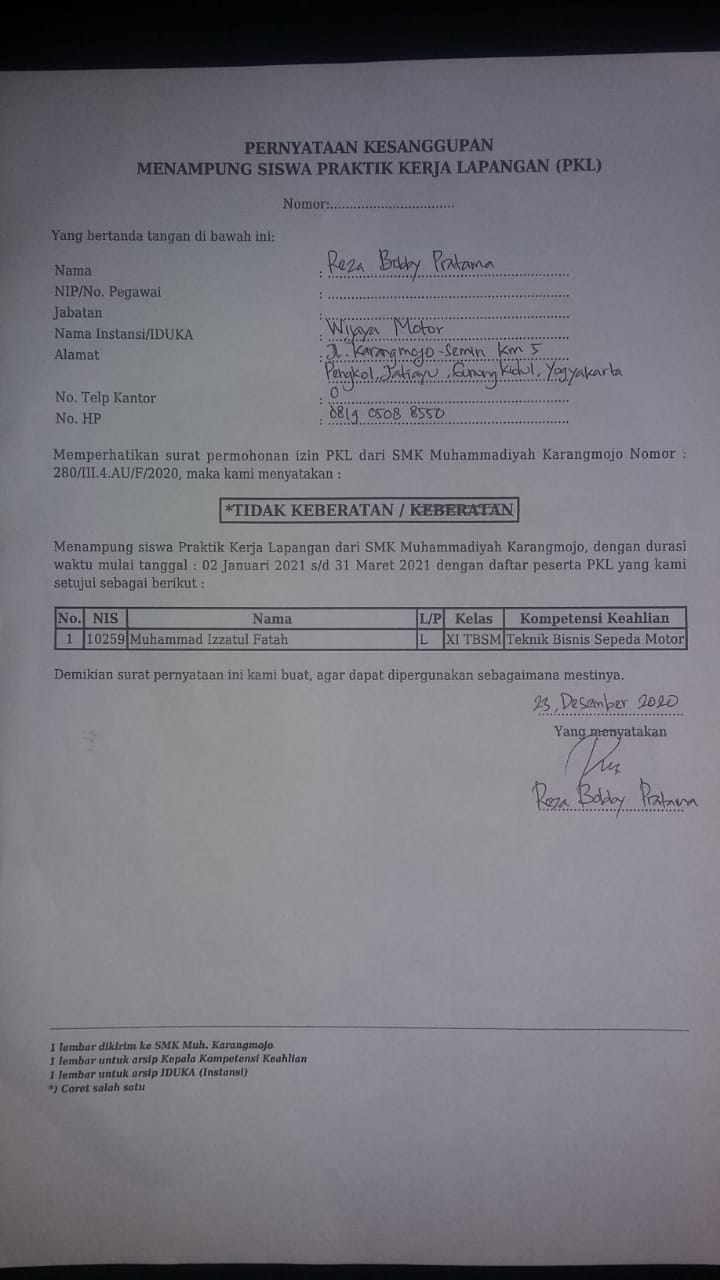 PERNYATAAN KESANGGUPAN
MENAMPUNG SISWA PRAKTIK KERJA LAPANGAN (PKL)
Nomor:................................
Yang bertanda tangan di bawah ini:
Nama : Reza Bobby Pratama
NIP/No. Pegawai :
Jabatan :
Nama Instansi/IDUKA : Wijaya Motor
Alamat : Jl. Karangmojo-Semin Km 5
Pengkol, Jatiayu, Gunung Kidul, Yogyakarta
No. Telp Kantor : 0
No. HP : 0819 0508 8550
Memperhatikan surat permohonan izin PKL dari SMK Muhammadiyah Karangmojo Nomor :
280/III.4.AU/F/2020, maka kami menyatakan :
*TIDAK KEBERATAN / KEBERATAN
Menampung siswa Praktik Kerja Lapangan dari SMK Muhammadiyah Karangmojo, dengan durasi
waktu mulai tanggal : 02 Januari 2021 s/d 31 Maret 2021 dengan daftar peserta PKL yang kami
setujui sebagai berikut :
No. NIS Nama L/P Kelas Kompetensi Keahlian
1 10259 Muhammad Izzatul Fatah L XI TBSM Teknik Bisnis Sepeda Motor
Demikian surat pernyataan ini kami buat, agar dapat dipergunakan sebagaimana mestinya.
23, Desember 2020
Yang menyatakan
Reza Bobby Pratama
1 lembar dikirim ke SMK Muh. Karangmojo
1 lembar untuk arsip Kepala Kompetensi Keahlian
1 lembar untuk arsip IDUKA (Instansi)
*) Coret salah satu